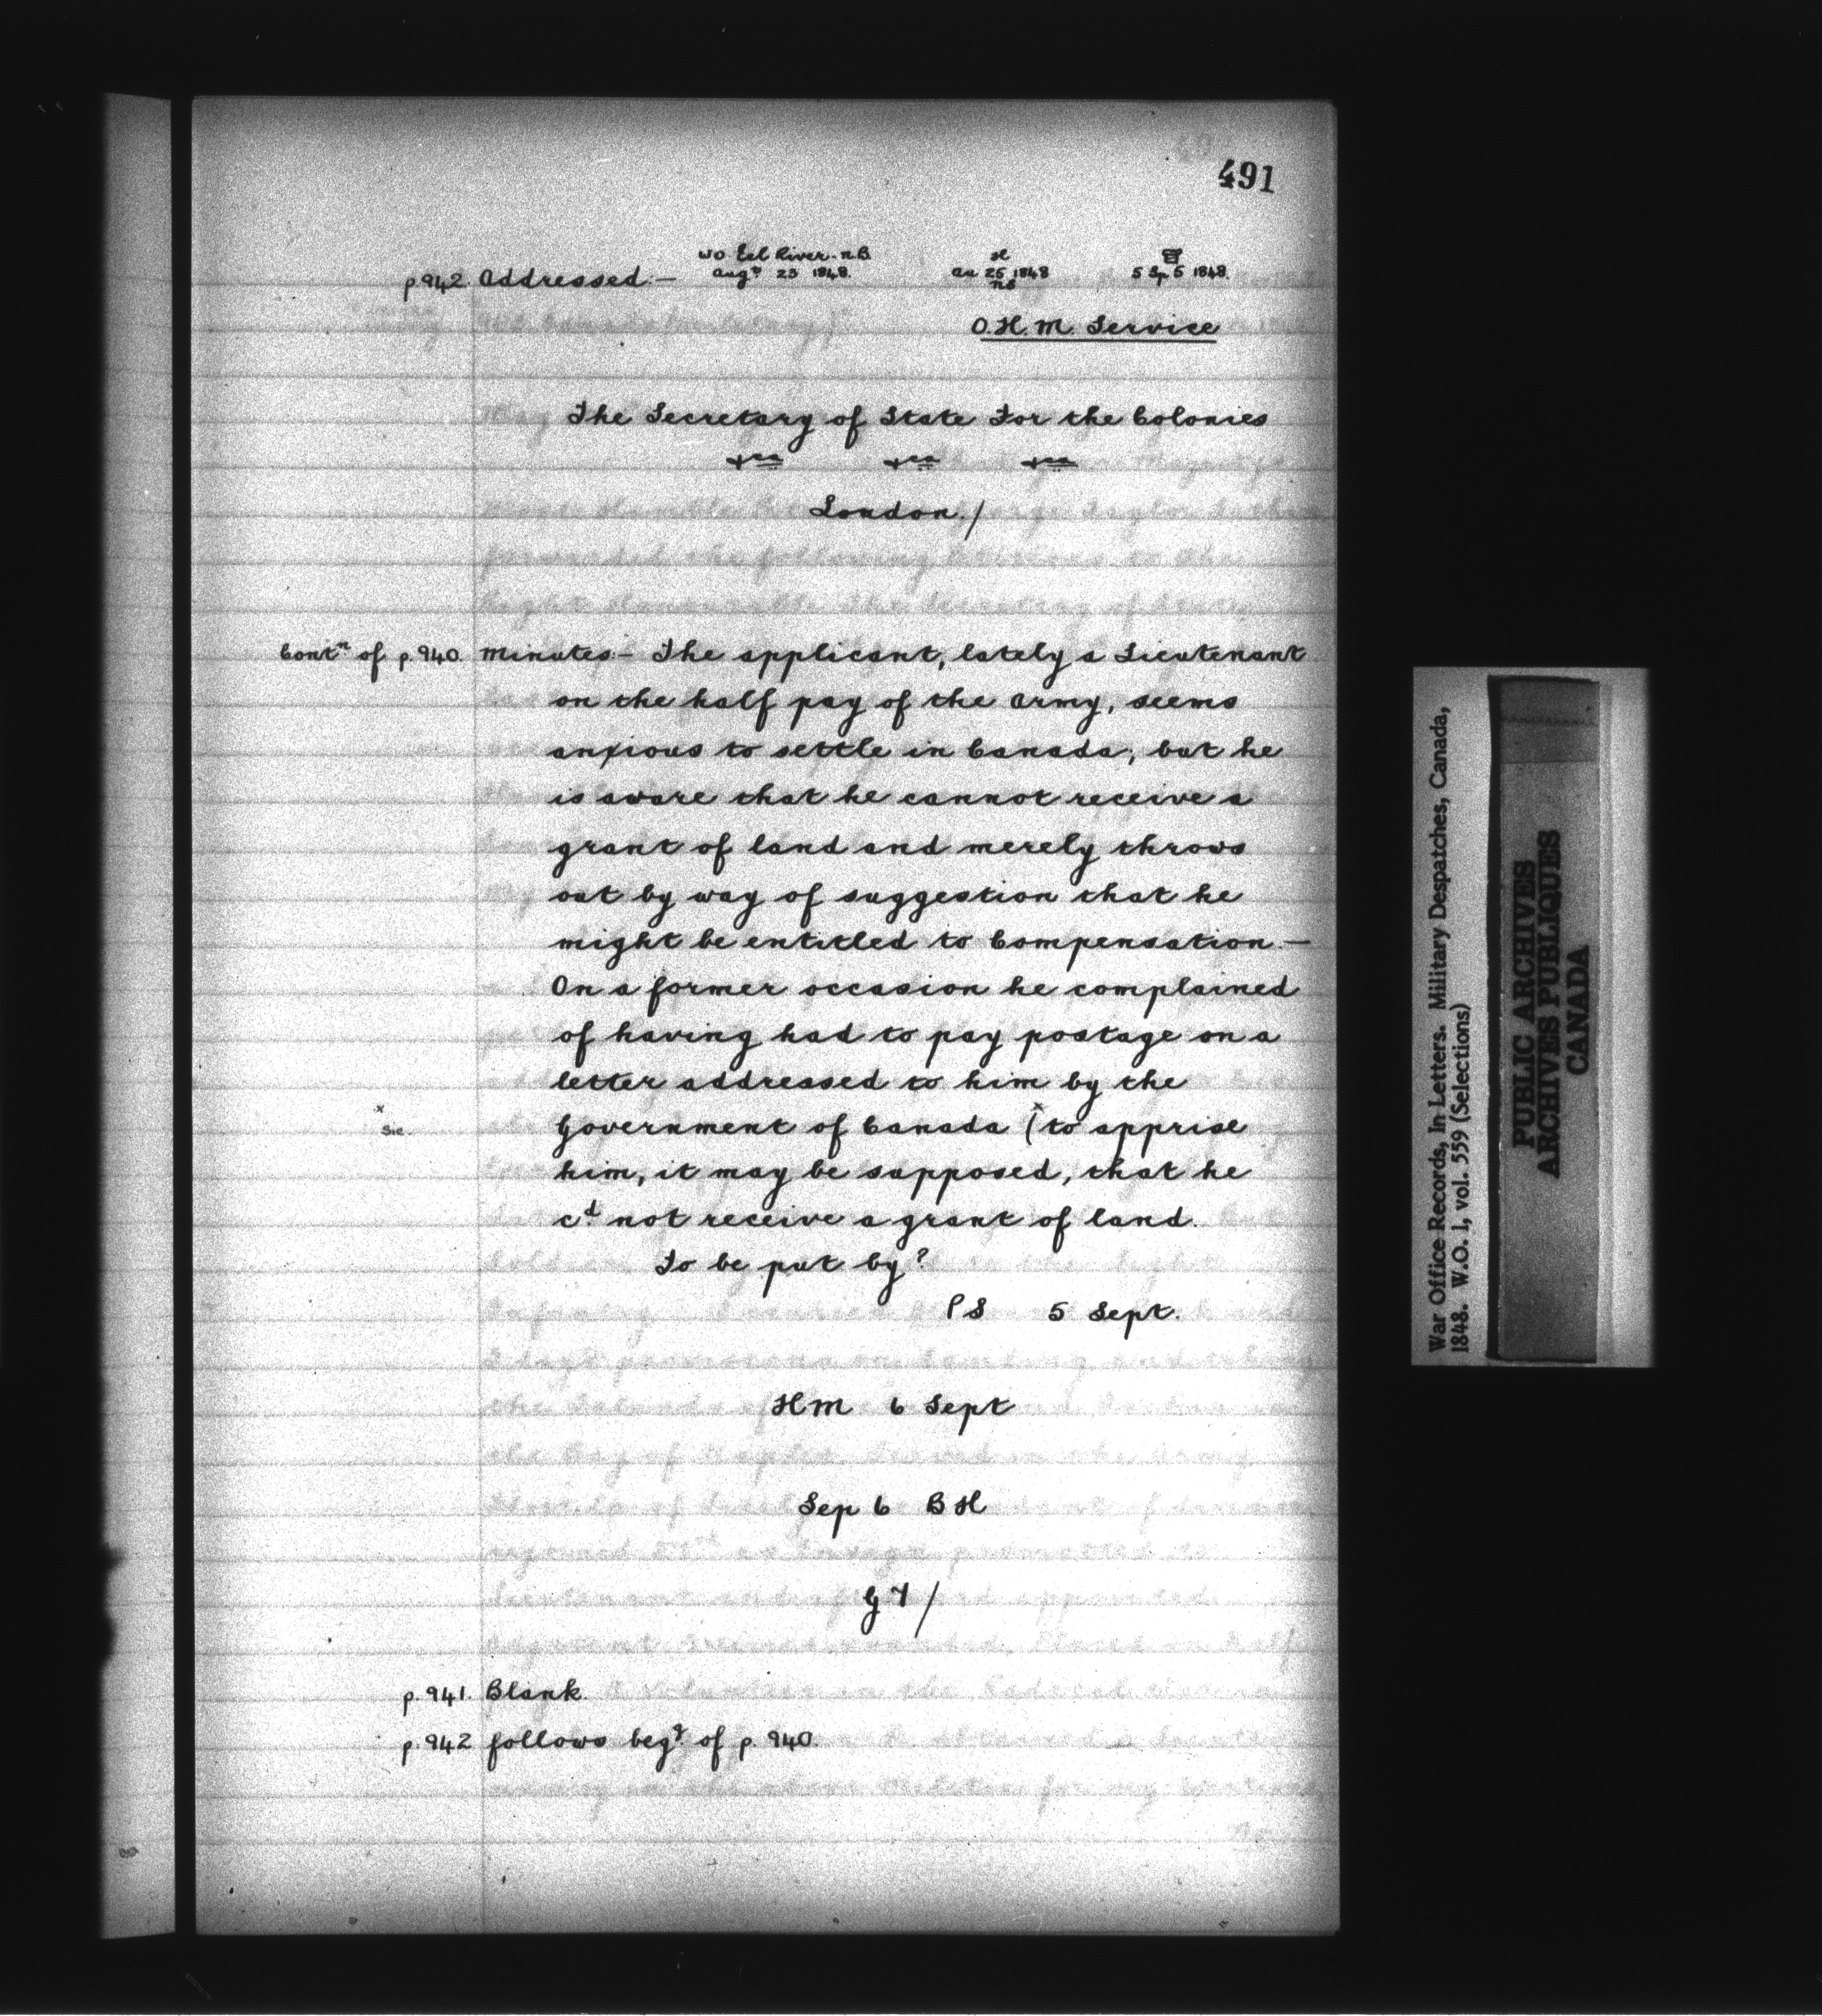 491
p.942. Addressed:— WO Eel River. N.B. H
Augt 23 1848. Au 25 1848 5 Sp 5 1848.
NB
O.H.M. Service
The Secretary of State For the Colonies
&ca &ca &ca
London./
Contn of p.940. Minutes:— The applicant, lately a Lieutenant
on the half pay of the Army, seems
anxious to settle in Canada; but he
is aware that he cannot receive a
grant of land and merely throws
out by way of suggestion that he
might be entitled to Compensation.—
On a former occasion he complained
of having had to pay postage on a
letter addressed to him by the
x
sic. Government of Canada (x to apprise
him, it may be supposed, that he
cd not receive a grant of land.
To be put by?
PS 5 Sept.
HM 6 Sept
Sep 6 BH
G 7/
p.941. Blank.
p.942 follows begg of p. 940.
War Office Records, In Letters. Military Despatches, Canada,
1848. W.O. 1, vol. 559 (Selections)
PUBLIC ARCHIVES
ARCHIVES PUBLIQUES
CANADA